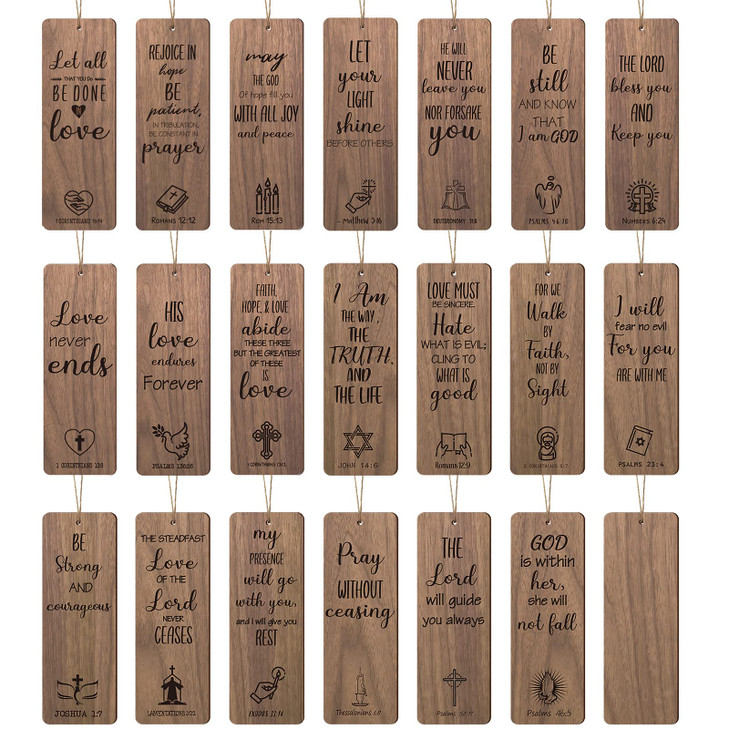 Let all
THAT YOU DO
BE DONE
love
REJOICE IN
hope
BE
patient,
IN TRIBULATION,
BE CONSTANT IN
prayer
ROMANS 12:12
may
THE GOD
Of hope fill you
WITH ALL JOY
and peace
ROM 15:13
LET
your
LIGHT
shine
BEFORE OTHERS
HE WILL
NEVER
leave you
NOR FORSAKE
you
DEUTERONOMY 31:8
BE
still
AND KNOW
THAT
I am GOD
PSALMS 46:10
THE LORD
bless you
AND
Keep you
NUMBERS 6:24
Love
never
ends
1 CORINTHIANS 13:8
HIS
love
endures
Forever
FAITH,
HOPE, & LOVE
abide
THESE THREE
BUT THE GREATEST
OF THESE
IS
love
I Am
THE WAY,
THE
TRUTH,
AND
THE LIFE
JOHN 14:6
LOVE MUST
BE SINCERE.
Hate
WHAT IS EVIL;
CLING TO
WHAT IS
good
Romans 12:9
FOR WE
Walk
BY
Faith,
NOT BY
Sight
I will
fear no evil
For you
ARE WITH ME
PSALMS 23:4
BE
Strong
AND
courageous
JOSHUA 1:7
THE STEADFAST
Love
OF THE
Lord
NEVER
CEASES
my
PRESENCE
will go
with you,
and I will give you
REST
EXODUS 33:14
Pray
WITHOUT
ceasing
THE
Lord
will guide
you always
GOD
is within
her,
she will
not fall
Psalms 46:5